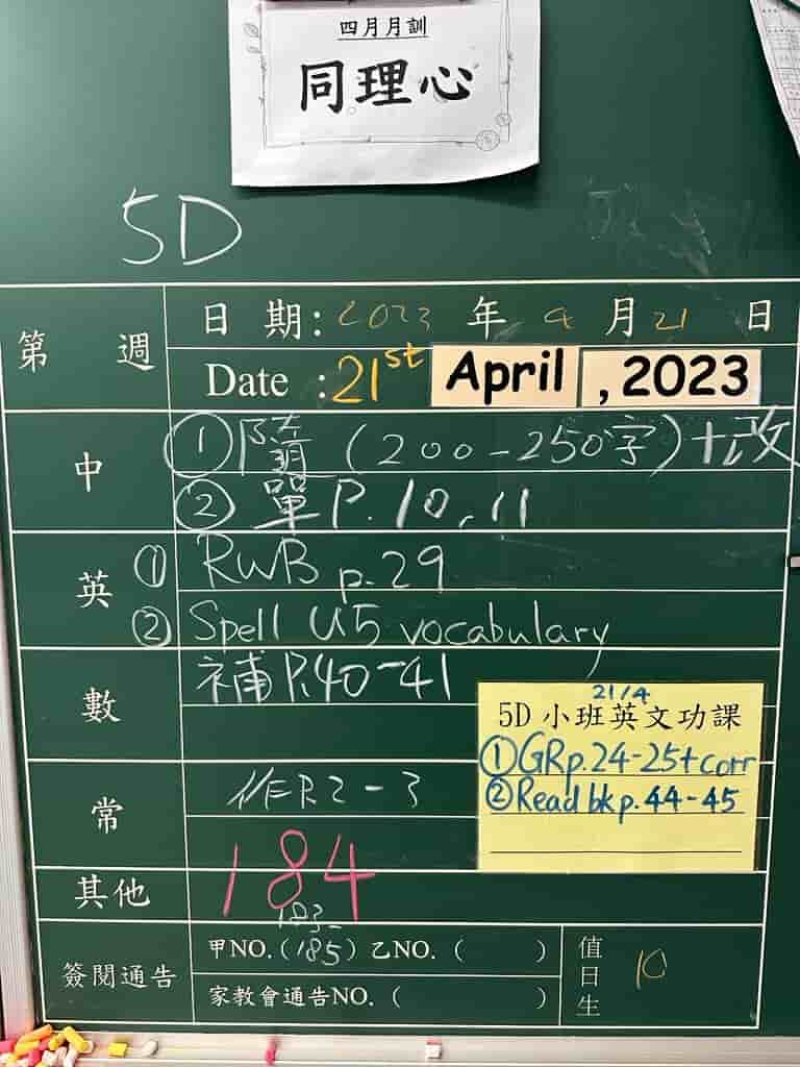 四月月訓
同理心
5D
第 週
日 期: 2023 年 4 月 21 日
Date : 21st April , 2023
中
① 隨 (200-250字)+改
② 單P. 10, 11
英
① RWB p. 29
② Spell U5 vocabulary
數
補P.40-41
21/4
5D 小班英文功課
① GRp.24-25+corr
② Read bk p.44-45
常
作P.2-3
其他
184
183-
簽閱通告
甲NO.(185) 乙NO. ( )
家教會通告NO. ( )
值日生
10